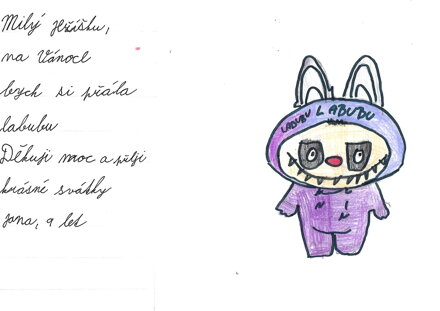 Milý Ježíšku,
na Vánoce
bych si přála
labubu
Děkuji moc a přeji
krásné svátky
Jana, 9 let
LABUBU LABUBU